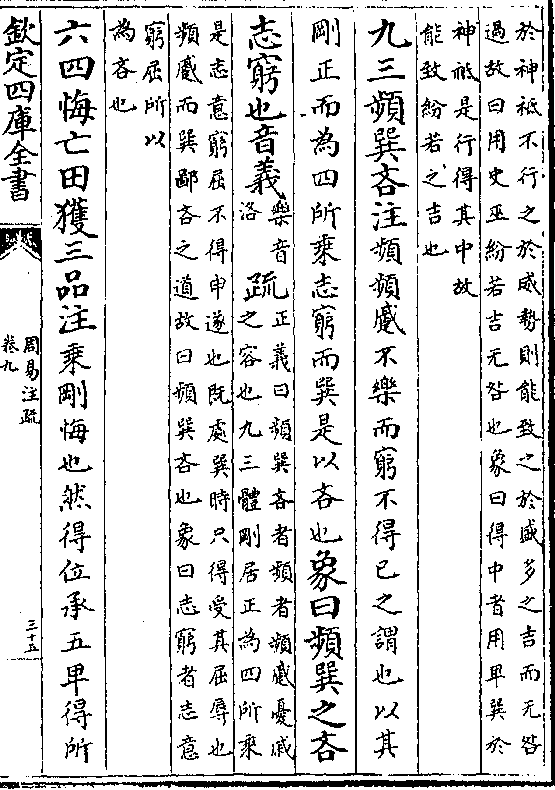 於神祗不行之於威勢則能致之於盛多之吉而无咎
過故曰用史巫紛若吉无咎也象曰得中者用卑巽於
神祗是行得其中故
能致紛若之吉也
九三頻巽吝注頻頻蹙不樂而窮不得已之謂也以其
剛正而為四所乘志窮而巽是以吝也象曰頻巽之吝
志窮也音義樂音洛疏正義曰頻巽吝者頻者頻蹙憂戚之容也九三體剛居正為四所乘
是志意窮屈不得申遂也既處巽時只得受其屈辱也
頻蹙而巽鄙吝之道故曰頻巽吝也象曰志窮者志意
窮屈所以
為吝也
六四悔亡田獲三品注乘剛悔也然得位承五卑得所
欽定四庫全書
周易注疏
卷九
三十五